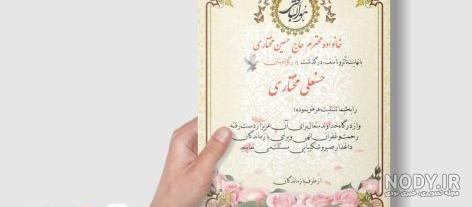 هوالباقی
خانواده محترم حاج حسین مختاری
با نهایت تاثر و تاسف، درگذشت
حسنعلی مختاری
را به شما تسلیت عرض نموده؛
و از درگاه خداوند متعال برای آن عزیز از دست رفته
رحمت و غفران الهی و برای بازماندگان
داغدار صبر و شکیبایی مسئلت می نماییم.
از طرف بازماندگان
NODY.IR
مجله تصویری، خبری نودی